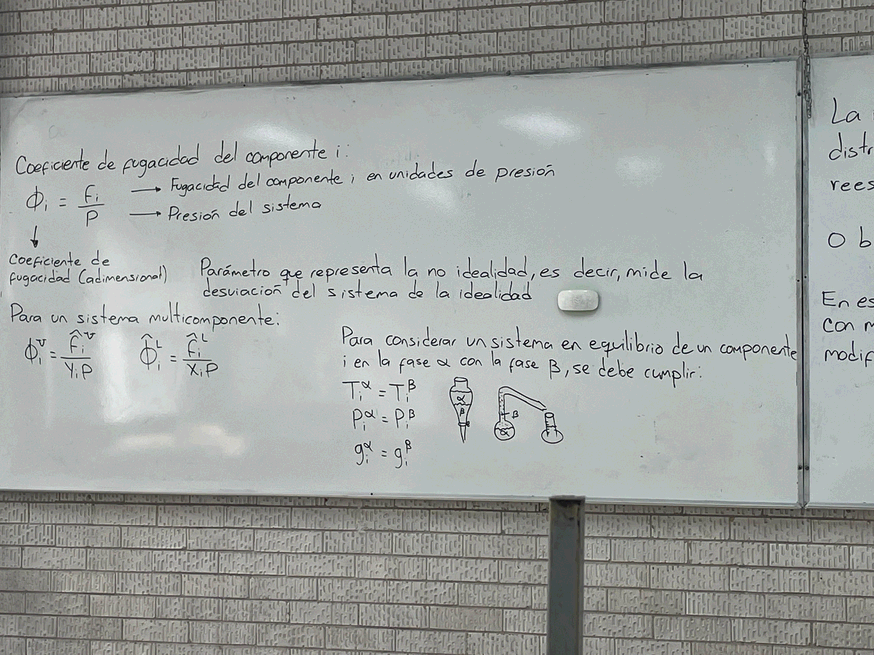 Coeficiente de fugacidad del componente i:
ϕᵢ = fᵢ / P
→ Fugacidad del componente i en unidades de presión
→ Presión del sistema
↓
Coeficiente de
fugacidad (adimensional)
Parámetro que representa la no idealidad, es decir, mide la
desviación del sistema de la idealidad
Para un sistema multicomponente:
ϕ̂ᵢᵛ = f̂ᵢᵛ / yᵢP
ϕ̂ᵢᴸ = f̂ᵢᴸ / xᵢP
Para considerar un sistema en equilibrio de un componente
i en la fase α con la fase β, se debe cumplir:
Tᵢᵅ = Tᵢᵝ
Pᵢᵅ = Pᵢᵝ
gᵢᵅ = gᵢᵝ
α
β
β
α
La
O b
En es
con
modif